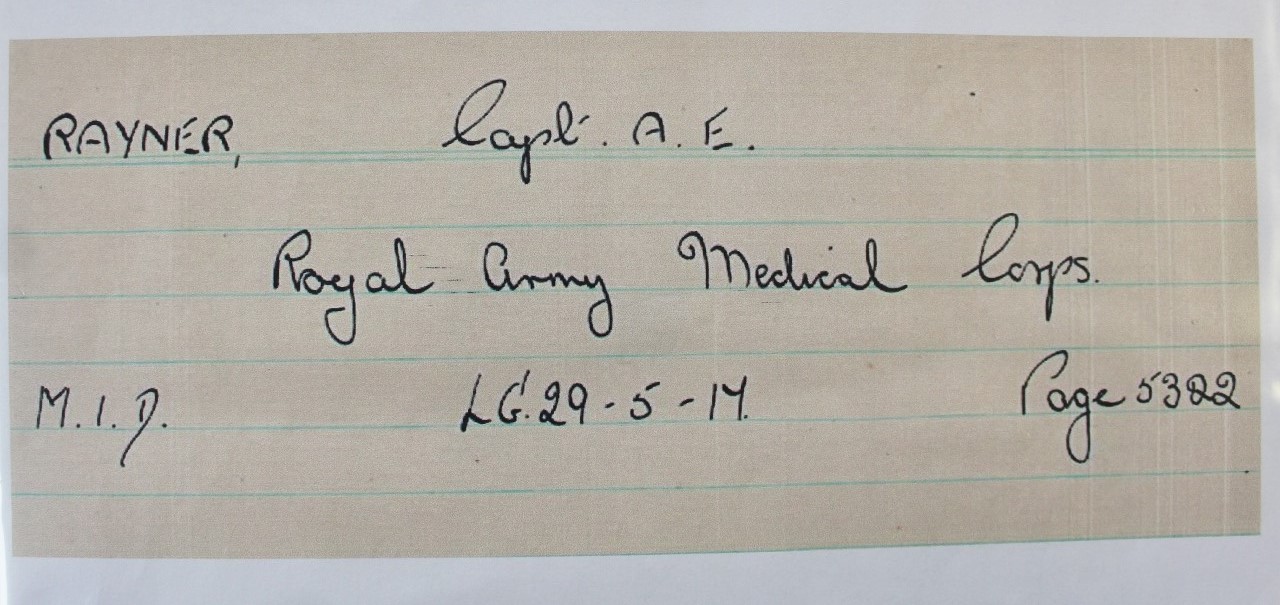 RAYNER, Capt. A. E.
Royal Army Medical Corps.
M.I.D. LG. 29-5-17. Page 5322